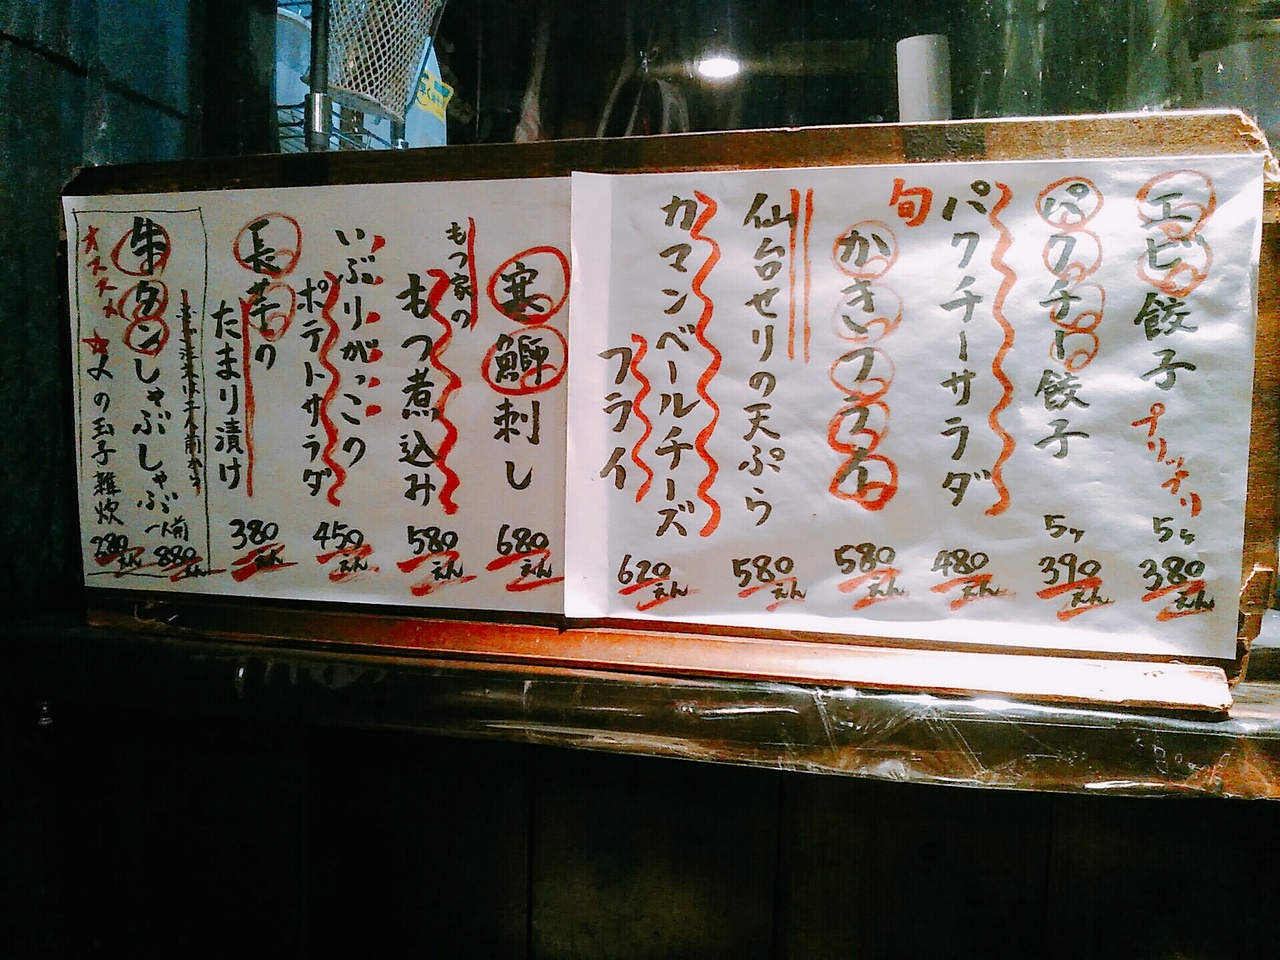 エビ餃子
プリップリ
5ヶ
380えん
パクチー餃子
5ヶ
390えん
パクチーサラダ
480えん
旬
かきフライ
580えん
仙台せりの天ぷら
580えん
カマンベールチーズ
フライ
620えん
寒鰤刺し
680えん
もつ家の
もつ煮込み
580えん
いぶりがっこの
ポテトサラダ
450えん
長芋の
たまり漬け
380えん
牛タンしゃぶしゃぶ
一人前
880えん
オススメ
〆の玉子雑炊
280えん